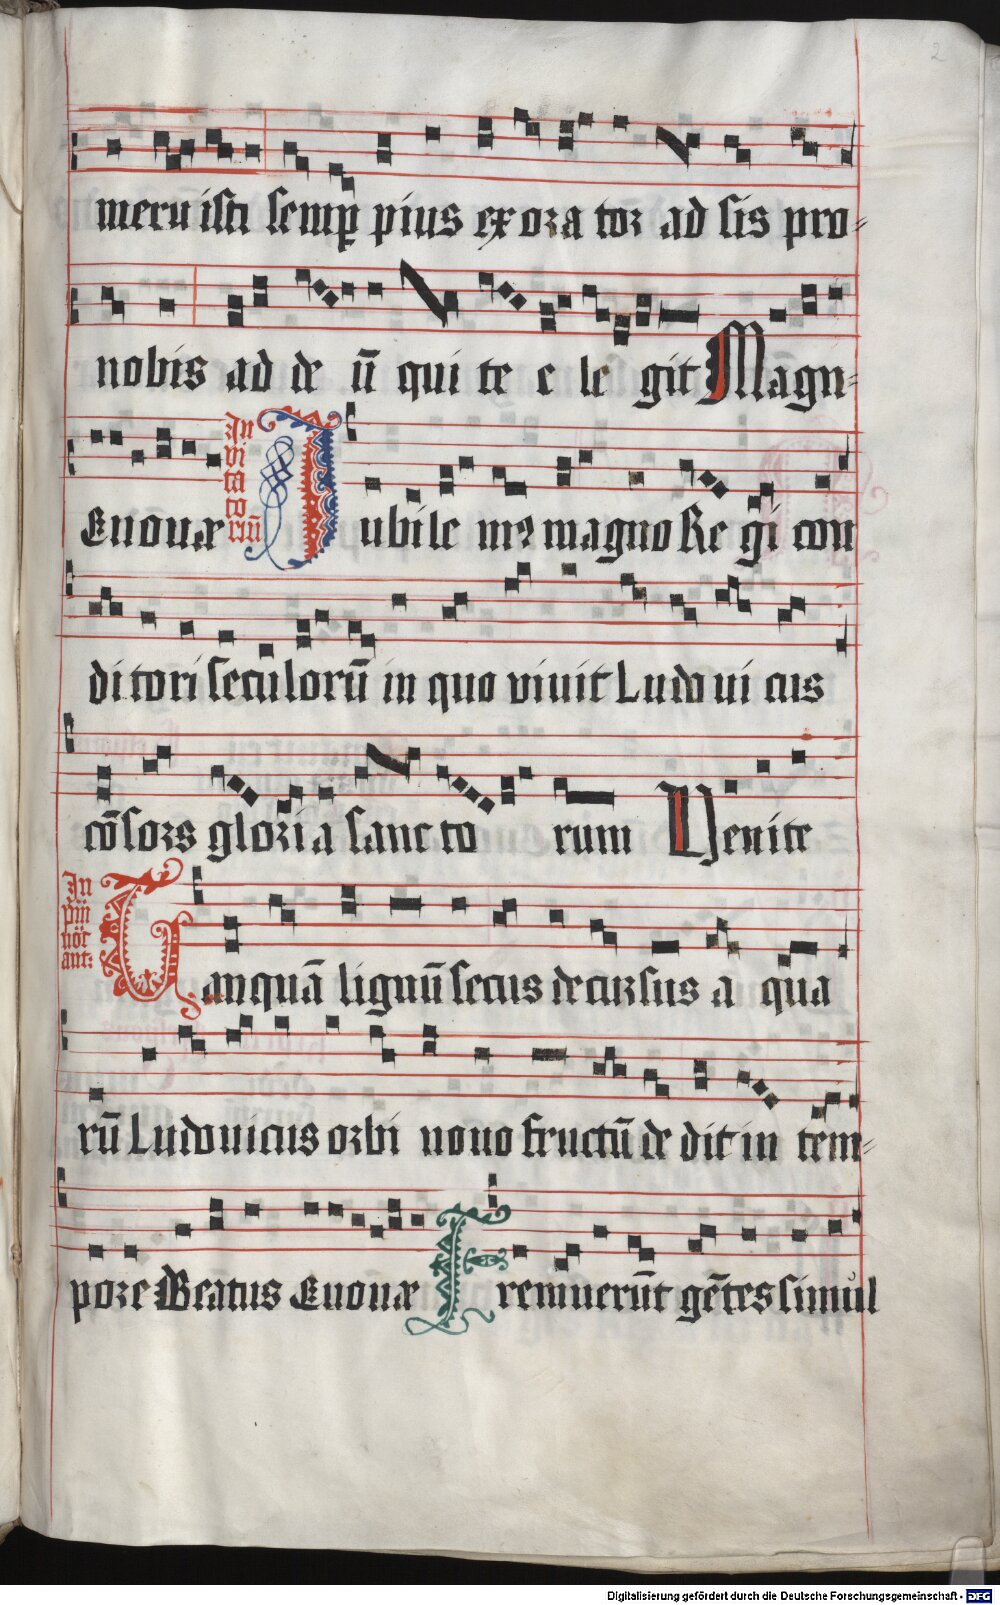 2
meru isti semp pius ex ora tor ad sis pro-
nobis ad de ū qui te e le git Magn-
Euouae In vi ta to riū Iubile mꝰ magno Re gi con
ditori seculorū in quo viuit Ludo ui cus
cōsors glori a sanc to rum Venite
In pm̄ noct ant: Tanquā lignū secus decursus a qua
rū Ludouicus orbi nouo fructū de dit in tem-
pore Beatus Euouae Fremuerūt gētes simul
Digitalisierung gefördert durch die Deutsche Forschungsgemeinschaft - DFG